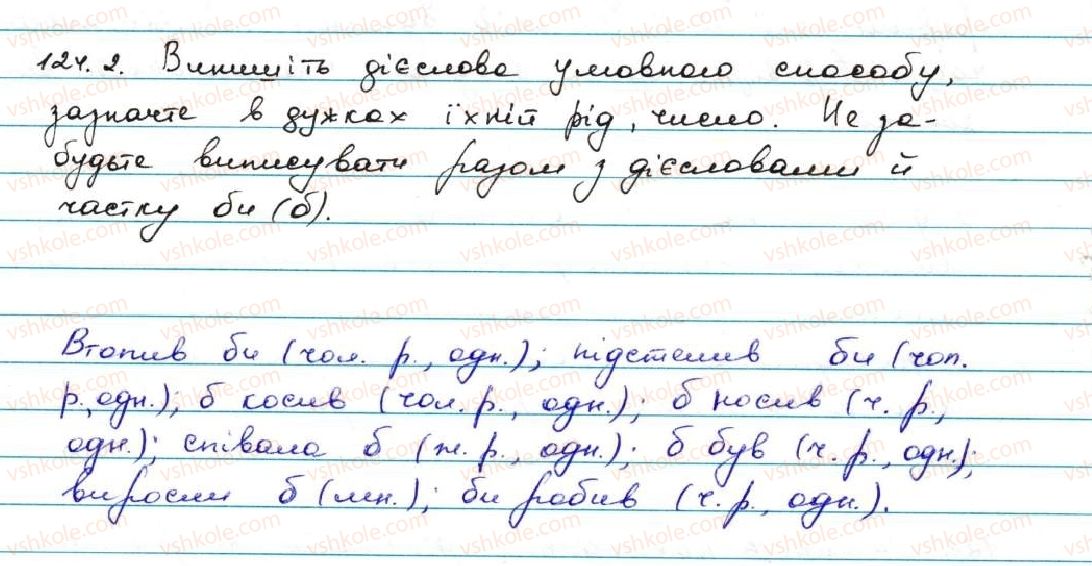 124.2. Випишіть дієслова умовного способу,
зазначте в дужках їхній рід, число. Не за-
будьте виписувати разом з дієсловами й
частку би (б).
Втопив би (чол. р., одн.); підстелив би (чол.
р., одн.); б косив (чол. р., одн.); б носив (ч. р.,
одн.); співала б (ж. р., одн.); б був (ч. р., одн.);
виросли б (мн.); би робив (ч. р., одн.).